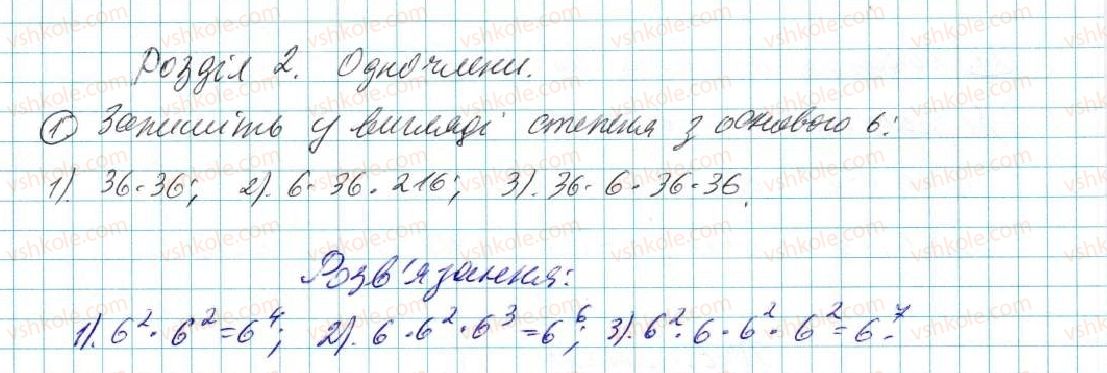 Розділ 2. Одночлени.
① Запишіть у вигляді степеня з основою 6:
1). 36·36; 2). 6·36·216; 3). 36·6·36·36.
Розв'язання:
1). 6²·6²=6⁴; 2). 6·6²·6³=6⁶; 3). 6²·6·6²·6²=6⁷.